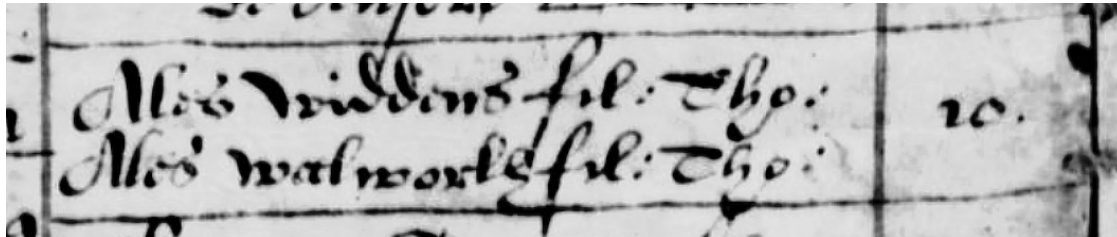 Ales Widdens fil: Tho: 10.
Ales Walworth fil: Tho: